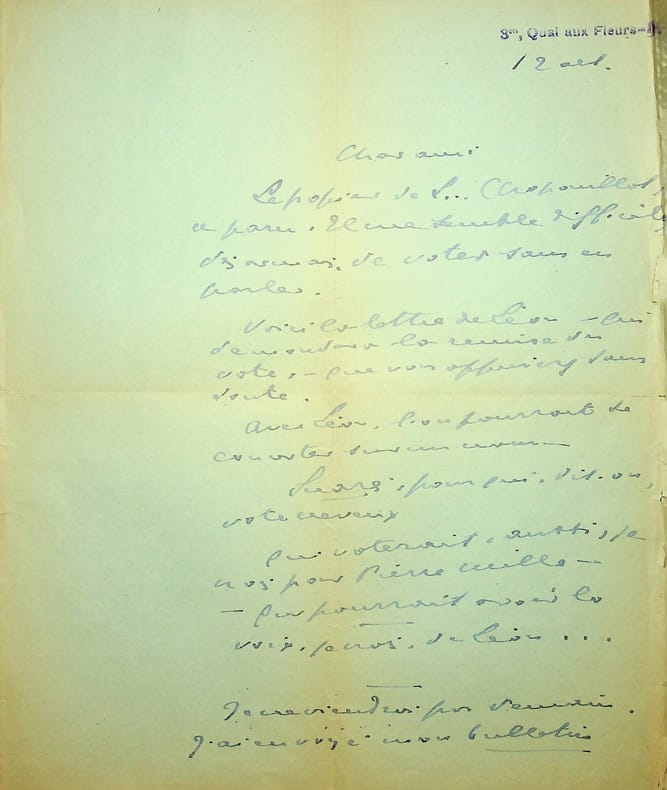 3bis, Quai aux Fleurs
12 oct.
Cher ami
Le papier de L... (Crapouillot)
a paru. Il me semble difficile
désormais, de voter sans en
parler.
Voici la lettre de Léon – qui
demandera la remise du
vote, – que vous appuierez sans
doute.
Avec Léon, l'on pourrait se
concerter sur un nom –
Suarès, pour qui, dit-on,
vote
Qui voterait, aussi, je
crois pour Pierre Mille –
– qui pourrait avoir la
voix, je crois, de Léon ...
Je ne viendrai pas demain.
J'ai envoyé mon bulletin